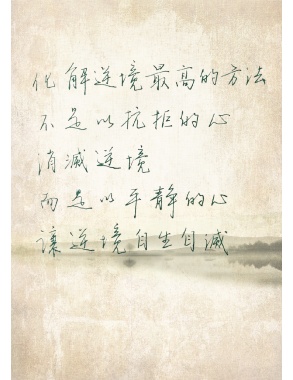 化解逆境最高的方法
不是以抗拒的心
消滅逆境
而是以平静的心
讓逆境自生自滅